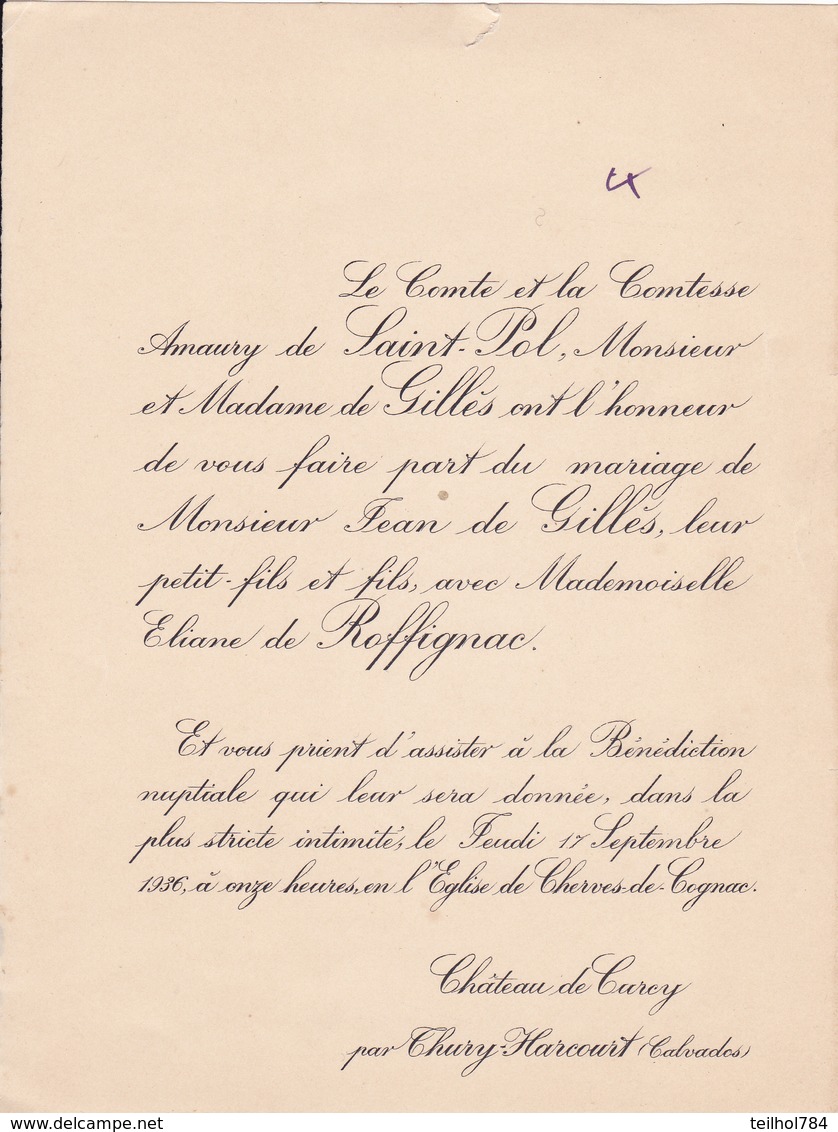 Le Comte et la Comtesse
Amaury de Saint-Pol, Monsieur
et Madame de Gillès ont l'honneur
de vous faire part du mariage de
Monsieur Jean de Gillès, leur
petit-fils et fils, avec Mademoiselle
Eliane de Roffignac.
Et vous prient d'assister à la Bénédiction
nuptiale qui leur sera donnée, dans la
plus stricte intimité, le Jeudi 17 Septembre
1936, à onze heures, en l'Eglise de Cherves-de-Cognac.
Château de Curcy
par Thury-Harcourt (Calvados)
www.delcampe.net
teilhol784